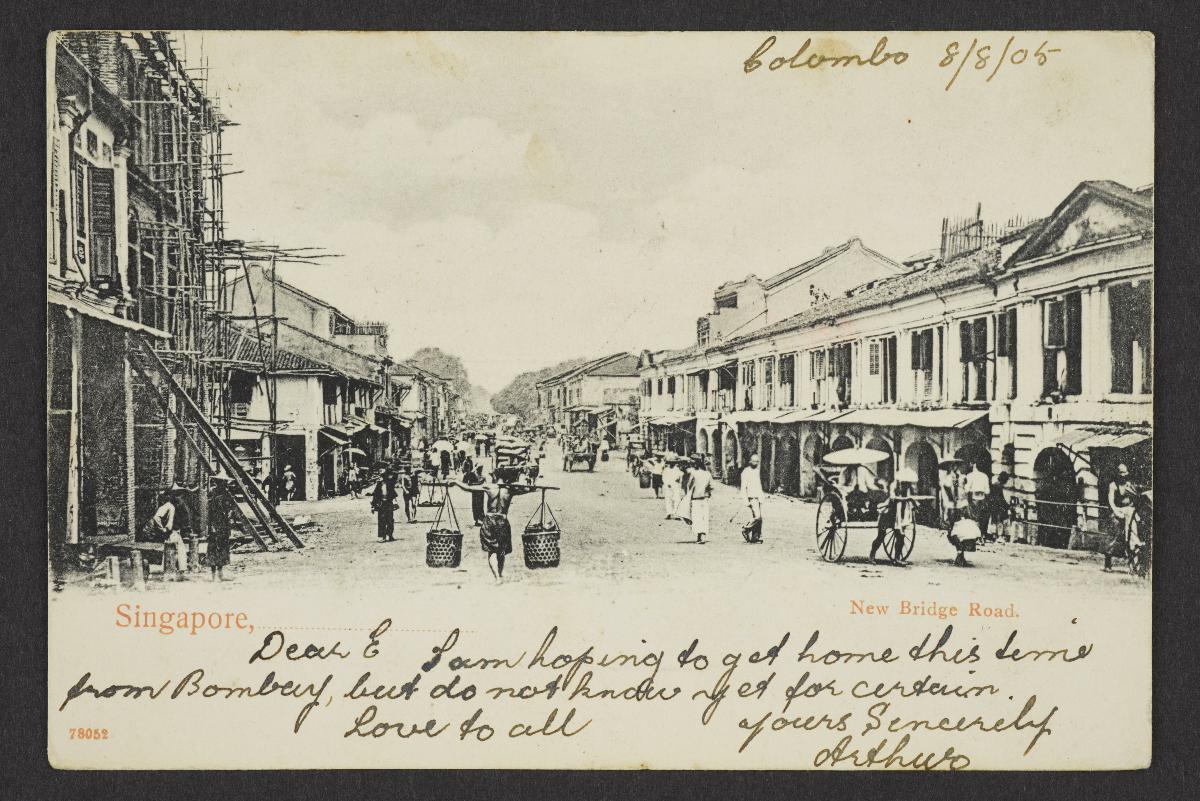 Colombo 8/8/05
Singapore,
New Bridge Road.
Dear E I am hoping to get home this time
from Bombay, but do not know yet for certain.
Love to all yours Sincerely
Arthur
78052